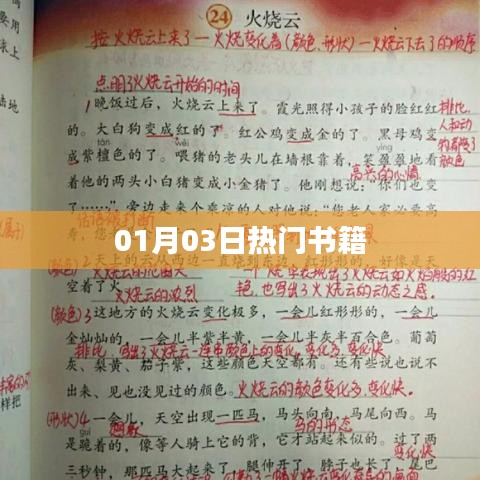 24 火烧云
按火烧云上来了一火烧变化着(颜色、形状)一火烧云下去了的顺序
点明了火烧云开始的时间
1晚饭过后，火烧云上来了。霞光照得小孩子的脸红红
的。大白狗变成红的了。红公鸡变成金的了。黑母鸡变
排比,
人和动
物看霞
颜色
tán
yíng
成紫檀色的了。喂猪的老头儿在墙根靠着，笑盈盈地看
高兴的心情
着他的两头小白猪变成小金猪了。他刚想说：“你们也变
了……”旁边走来个乘凉的人对他说：“您老人家必要高
01月03日热门书籍
空着了火。
火烧云的浓烈
艳,也写出了火烧云的动态之感.
(颜色)3这地方的火烧云变化极多，一会儿红彤彤的，一会儿
金灿灿的，一会儿半紫半黄，一会儿半灰半百合色。葡萄
排比,写出了火烧云一连串颜色上的变化,变化多,变化快
灰、梨黄、茄子紫，这些颜色天空都有。还有些说也说不
出来、见也没见过的颜色。火烧云的颜色变化多,变化快.
(形状)4一会儿，天空出现一匹马，马头向南，马尾向西。马
guì
马的形态
是跪着的，像等人骑上它的背，它才站起来似的。过了两
三秒钟，那匹马大起来了，腿伸开了，脖子也长了，尾巴